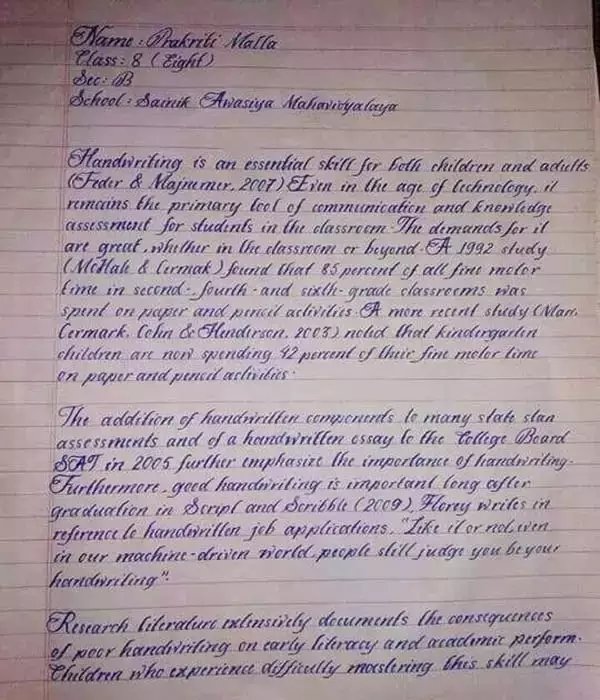 Name : Prakriti Malla
Class : 8 (Eight)
Sec : B
School : Sainik Awasiya Mahavidyalaya
Handwriting is an essential skill for both children and adults
(Feder & Majnemer, 2007) Even in the age of technology, it
remains the primary tool of communication and knowledge
assessment for students in the classroom. The demands for it
are great, whether in the classroom or beyond. A 1992 study
(McHale & Cermak) found that 85 percent of all fine motor
time in second-, fourth- and sixth-grade classrooms was
spent on paper and pencil activities. A more recent study (Marr,
Cermark, Cohn & Henderson, 2003) noted that kindergarten
children are now spending 42 percent of their fine motor time
on paper and pencil activities.
The addition of handwritten components to many state stan
assessments and of a handwritten essay to the College Board
SAT in 2005 further emphasize the importance of handwriting.
Furthermore, good handwriting is important long after
graduation in Script and Scribble (2009), Florey writes in
reference to handwritten job applications, "Like it or not, even
in our machine-driven world, people still judge you be your
handwriting".
Research literature extensively documents the consequences
of poor handwriting on early literacy and academic perform.
Children who experience difficulty mastering this skill may